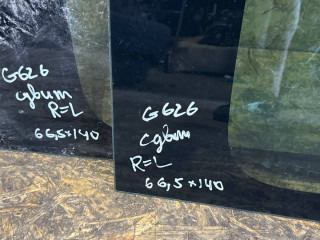 G626
сдвиж
R=L
66,5×140
G626
сдвиж
R=L
66,5×140